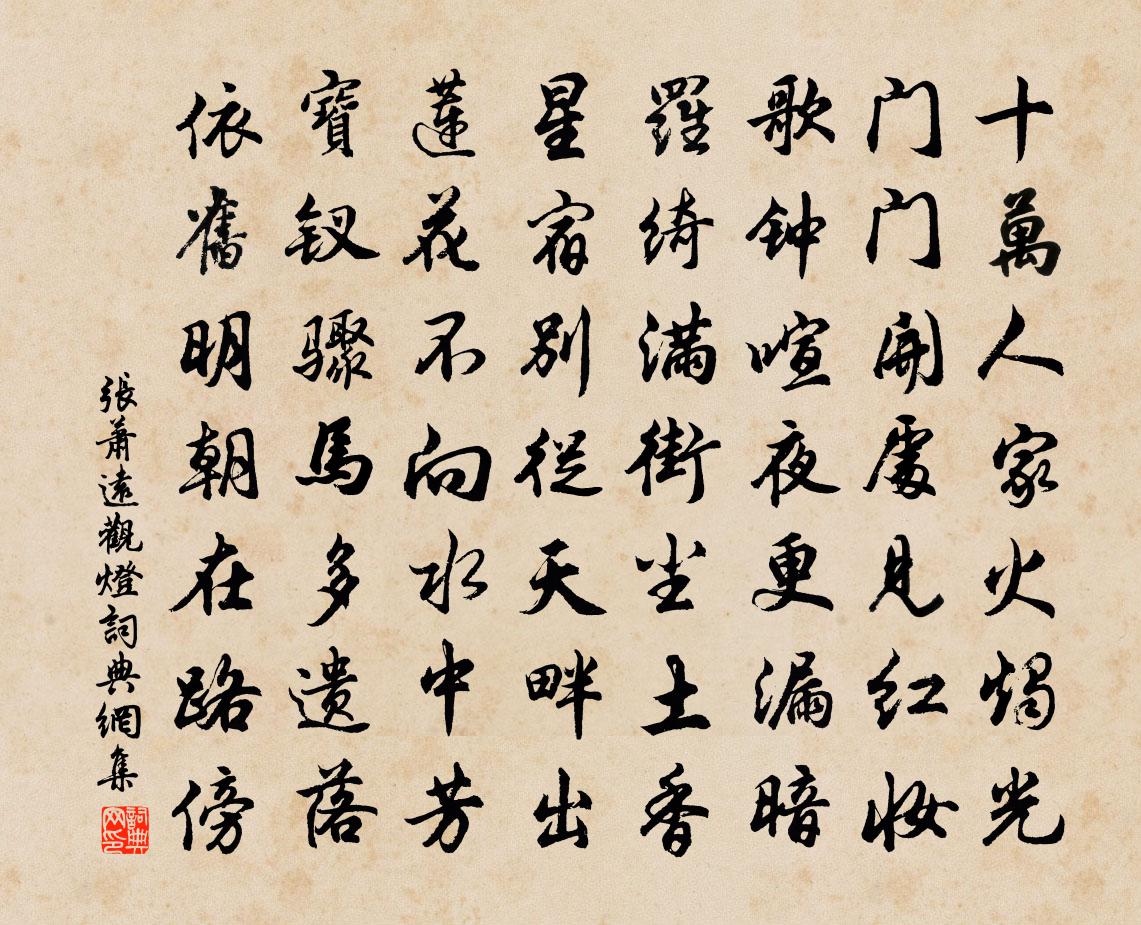 十萬人家火燭光
门门開處見红妝
歌钟喧夜更漏暗
羅绮满街尘土香
星宿别從天畔出
莲花不向水中芳
寶钗骤馬多遗落
依舊明朝在路傍
張蕭遠觀燈詞典網集
詞典网印